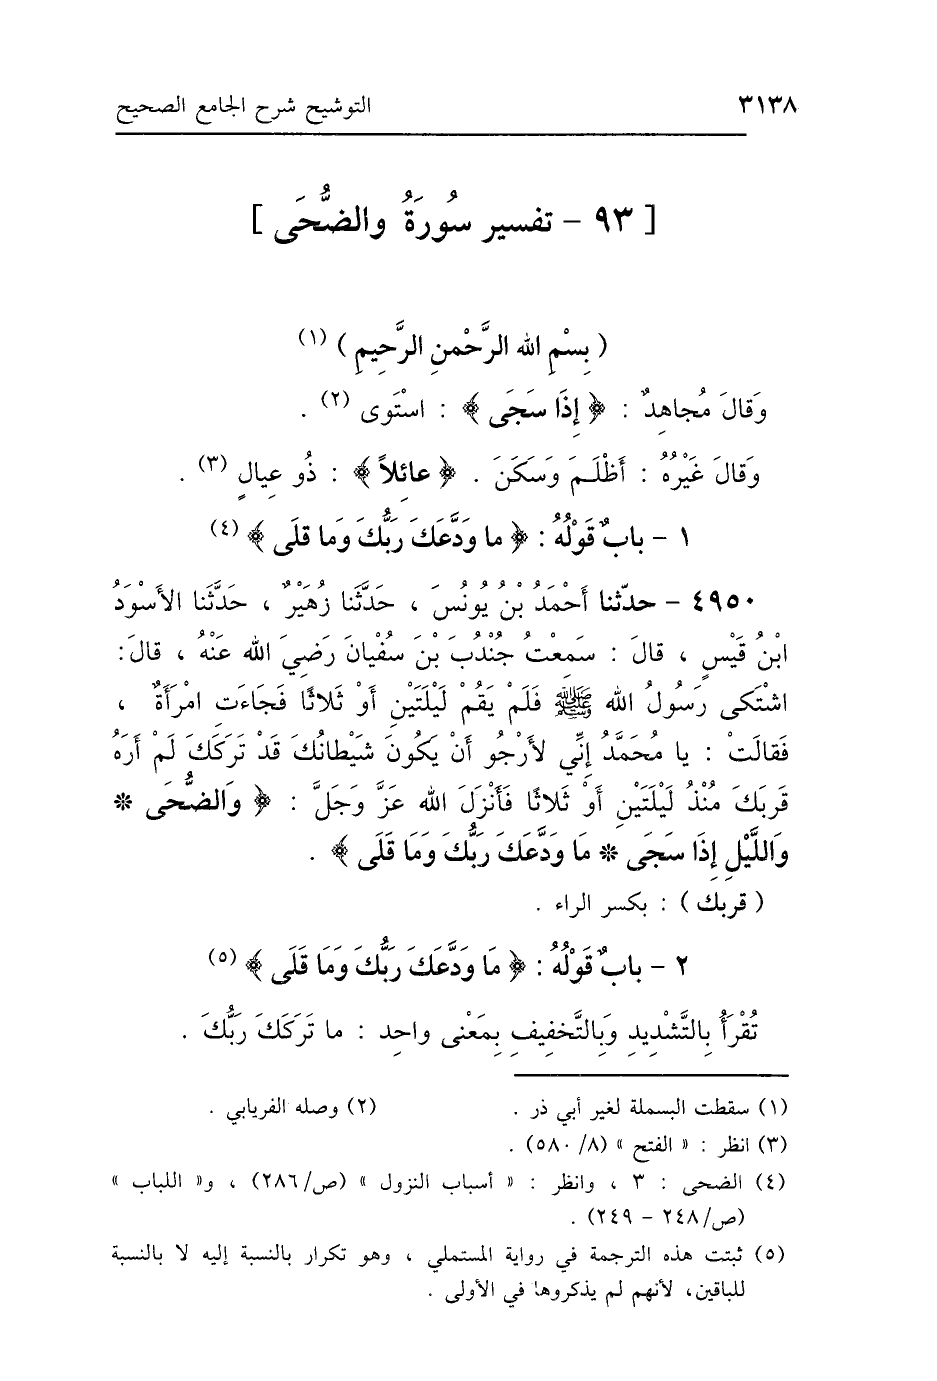 ٣١٣٨ التوشيح شرح الجامع الصحيح
[ ٩٣ - تفسير سُورَةُ والضُّحَى ]
( بِسْمِ الله الرَّحْمنِ الرَّحِيمِ ) (١)
وَقالَ مُجاهِدٌ : ﴿ إِذَا سَجَى ﴾ : اسْتَوى (٢) .
وَقالَ غَيْرُهُ : أَظْلَمَ وَسَكَنَ . ﴿ عائلاً ﴾ : ذُو عِيالٍ (٣) .
١ - بابٌ قَوْلُهُ : ﴿ ما وَدَّعَكَ رَبُّكَ وَما قلَى ﴾ (٤)
٤٩٥٠ - حدّثنا أَحْمَدُ بْنُ يُونُسَ ، حَدَّثَنا زُهَيْرٌ ، حَدَّثَنا الأَسْوَدُ
ابْنُ قَيْسٍ ، قالَ : سَمِعْتُ جُنْدُبَ بْنَ سُفْيانَ رَضِيَ الله عَنْهُ ، قالَ:
اشْتَكى رَسُولُ الله ﷺ فَلَمْ يَقُمْ لَيْلَتَيْنِ أَوْ ثَلاثًا فَجَاءَتِ امْرَأَةٌ ،
فَقالَتْ : يا مُحَمَّدُ إِنِّي لأَرْجُو أَنْ يَكُونَ شَيْطانُكَ قَدْ تَرَكَكَ لَمْ أَرَهُ
قَرِبَكَ مُنْذُ لَيْلَتَيْنِ أَوْ ثَلاثًا فَأَنْزَلَ الله عَزَّ وَجَلَّ : ﴿ وَالضُّحَى *
وَاللَّيْلِ إِذَا سَجَى * مَا وَدَّعَكَ رَبُّكَ وَمَا قَلَى ﴾ .
( قربك ) : بكسر الراء .
٢ - بابٌ قَوْلُهُ : ﴿ مَا وَدَّعَكَ رَبُّكَ وَمَا قَلَى ﴾ (٥)
تُقْرَأُ بِالتَّشْدِيدِ وَبِالتَّخفِيفِ بِمَعْنى واحِد : ما تَرَكَكَ رَبُّكَ .
(١) سقطت البسملة لغير أبي ذر . (٢) وصله الفريابي .
(٣) انظر : « الفتح » (٨/ ٥٨٠) .
(٤) الضحى : ٣ ، وانظر : « أسباب النزول » (ص/٢٨٦) ، و« اللباب »
(ص/٢٤٨ - ٢٤٩) .
(٥) ثبتت هذه الترجمة في رواية المستملي ، وهو تكرار بالنسبة إليه لا بالنسبة
للباقين، لأنهم لم يذكروها في الأولى .